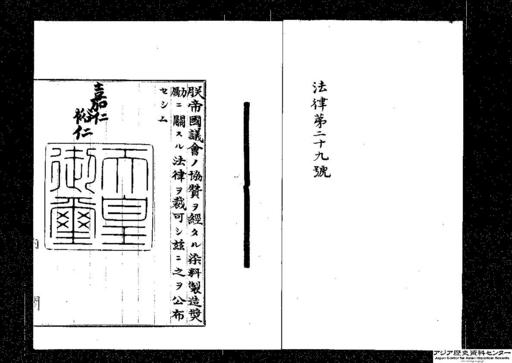 法律第二十九號
朕帝國議會ノ協贊ヲ經タル染料製造奬
勵ニ關スル法律ヲ裁可シ玆ニ之ヲ公布
セシム
嘉仁
裕仁
天皇
御璽
アジア歴史資料センター
Japan Center for Asian Historical Records